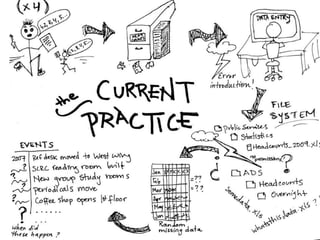 (x4)
1, 2, 3, 4, 5..
DATA ENTRY
Error
introduction!
the CURRENT
PRACTICE
FILE
SYSTEM
Public Services
Statistics
Headcounts_2009.xls
ADS
Headcounts
Overnight
Somedata.xls
whatsthisdata.xls ?
EVENTS
2007 Ref desk moved to West Wing
? SLRC reading room built
? New group study rooms
? Periodicals move
? Coffee shop opens 1st floor
? ......
When did
these happen?
Jan
Feb
Mar
Apr
May
Jun
= ??
= ??
Random
missing data
?